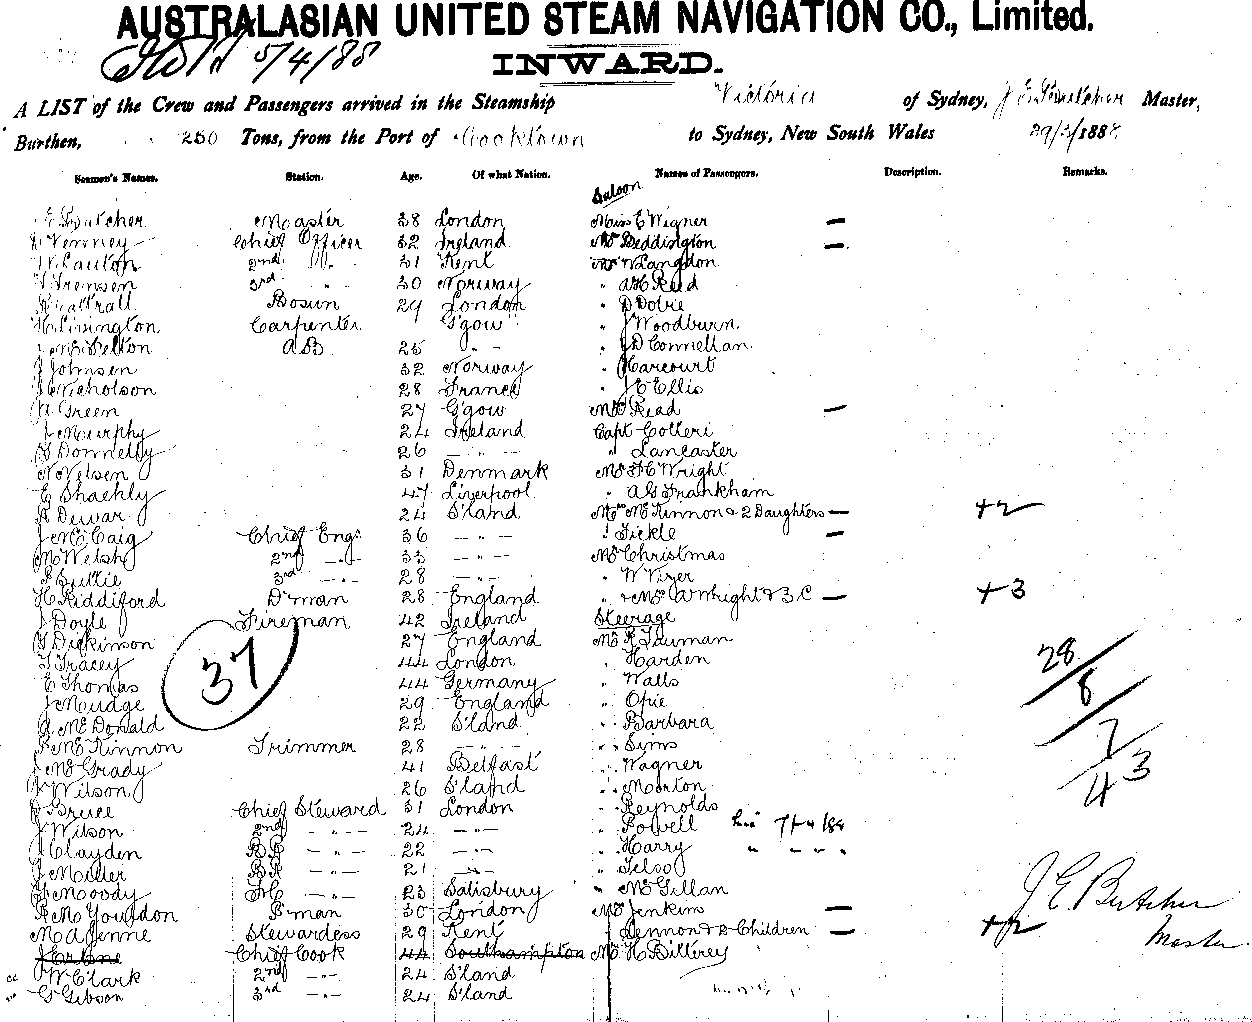 AUSTRALASIAN UNITED STEAM NAVIGATION CO., Limited.
5/4/88
INWARD.
A LIST of the Crew and Passengers arrived in the Steamship Victoria of Sydney, J E Butcher Master,
Burthen, 250 Tons, from the Port of Cooktown to Sydney, New South Wales 29/3/1888
Seamen's Names. Station. Age. Of what Nation. Names of Passengers. Description. Remarks.
Saloon
E Butcher Master 38 London Miss E Wigner —
Chief Officer 32 Ireland Mrs Beddington —
2nd " 31 Kent Mr W Langdon
3rd " 30 Norway " A H Reid
Bosun 29 London " D Dobie
Carpenter " G'gow " J Woodburn
A B 25 " " J D Connellan
J Johnsen 32 Norway " Harcourt
J C Nicholson 28 France " J C Ellis
W Green 27 G'gow Mrs Read —
J Murphy 24 Ireland Capt Colleri
Donnelly 26 " " Lancaster
N Nelsen 31 Denmark Mr H C Wright
E Shaehly 47 Liverpool " A G Frankham
A Dewar 24 S'land Mrs McKinnon & 2 Daughters — +2
J McCaig Chief Engr 36 " " Tickle —
M Welsh 2nd " 33 " Mr Christmas
3rd " 28 " " W Vizer
H Riddiford D'man 28 England " & Mrs A Wright & 3 C — +3
J Doyle Fireman 42 Ireland Steerage
Dickinson 27 England Mr R Tauman
T Tracey 44 London " Harden
E Thomas 44 Germany " Watts
J Mudge 29 England " Opie
A McDonald 22 S'land " Barbara
McKinnon Trimmer 28 " " Sims
J McGrady 41 Belfast " Wagner
J Wilson 26 S'land " Morton
Bruce Chief Steward 31 London " Reynolds
J Wilson 2nd " 24 " " Powell 7/4/88
J Clayden B R " 22 " " Harry " " " "
J Miller B R " 21 "
Moody F C " 23 Salisbury " McGillan
Yourdon P'man 30 London Mrs Jenkins —
M A Jenne Stewardess 29 Kent Lennon & 2 Children — +2
Chief Cook 44 Southampton Mr H Bitterey
W Clark 2nd " 24 S'land
G Gibson 3rd " 24 S'land
37
28
8
7
43
J E Butcher
Master